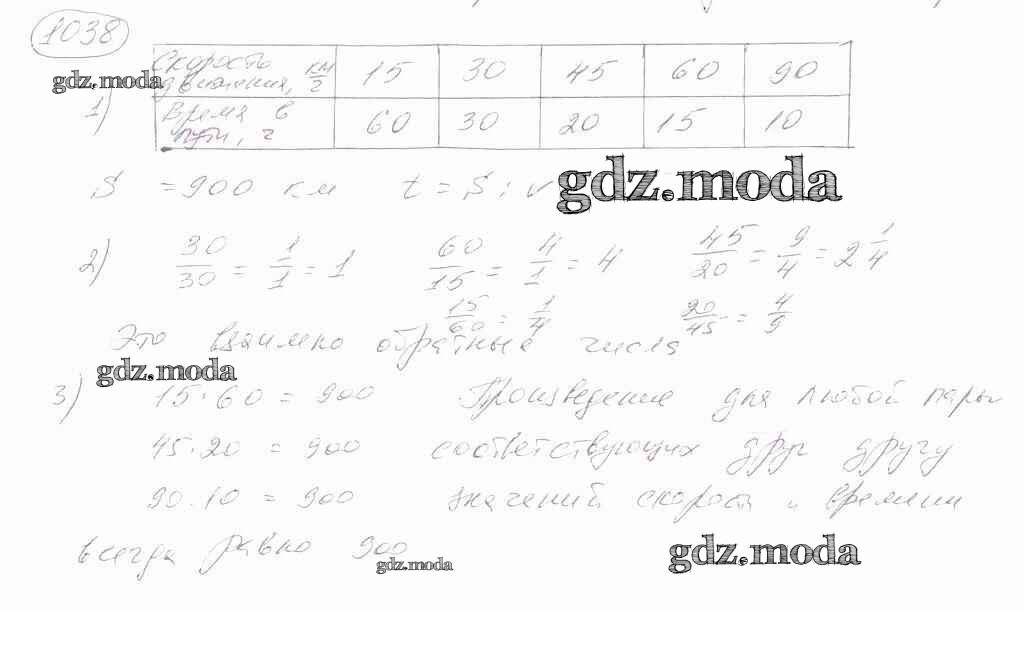 1038
Скорость движения, км/ч 15 30 45 60 90
gdz.moda
1) Время в пути, ч 60 30 20 15 10
S = 900 км t = S : v
gdz.moda
2) 30/30 = 1/1 = 1 60/15 = 4/1 = 4 45/20 = 9/4 = 2 1/4
15/60 = 1/4 20/45 = 4/9
Это взаимно обратные числа
gdz.moda
3) 15 · 60 = 900 Произведение для любой пары
45 · 20 = 900 соответствующих друг другу
90 · 10 = 900 значений скорости и времени
всегда равно 900
gdz.moda
gdz.moda